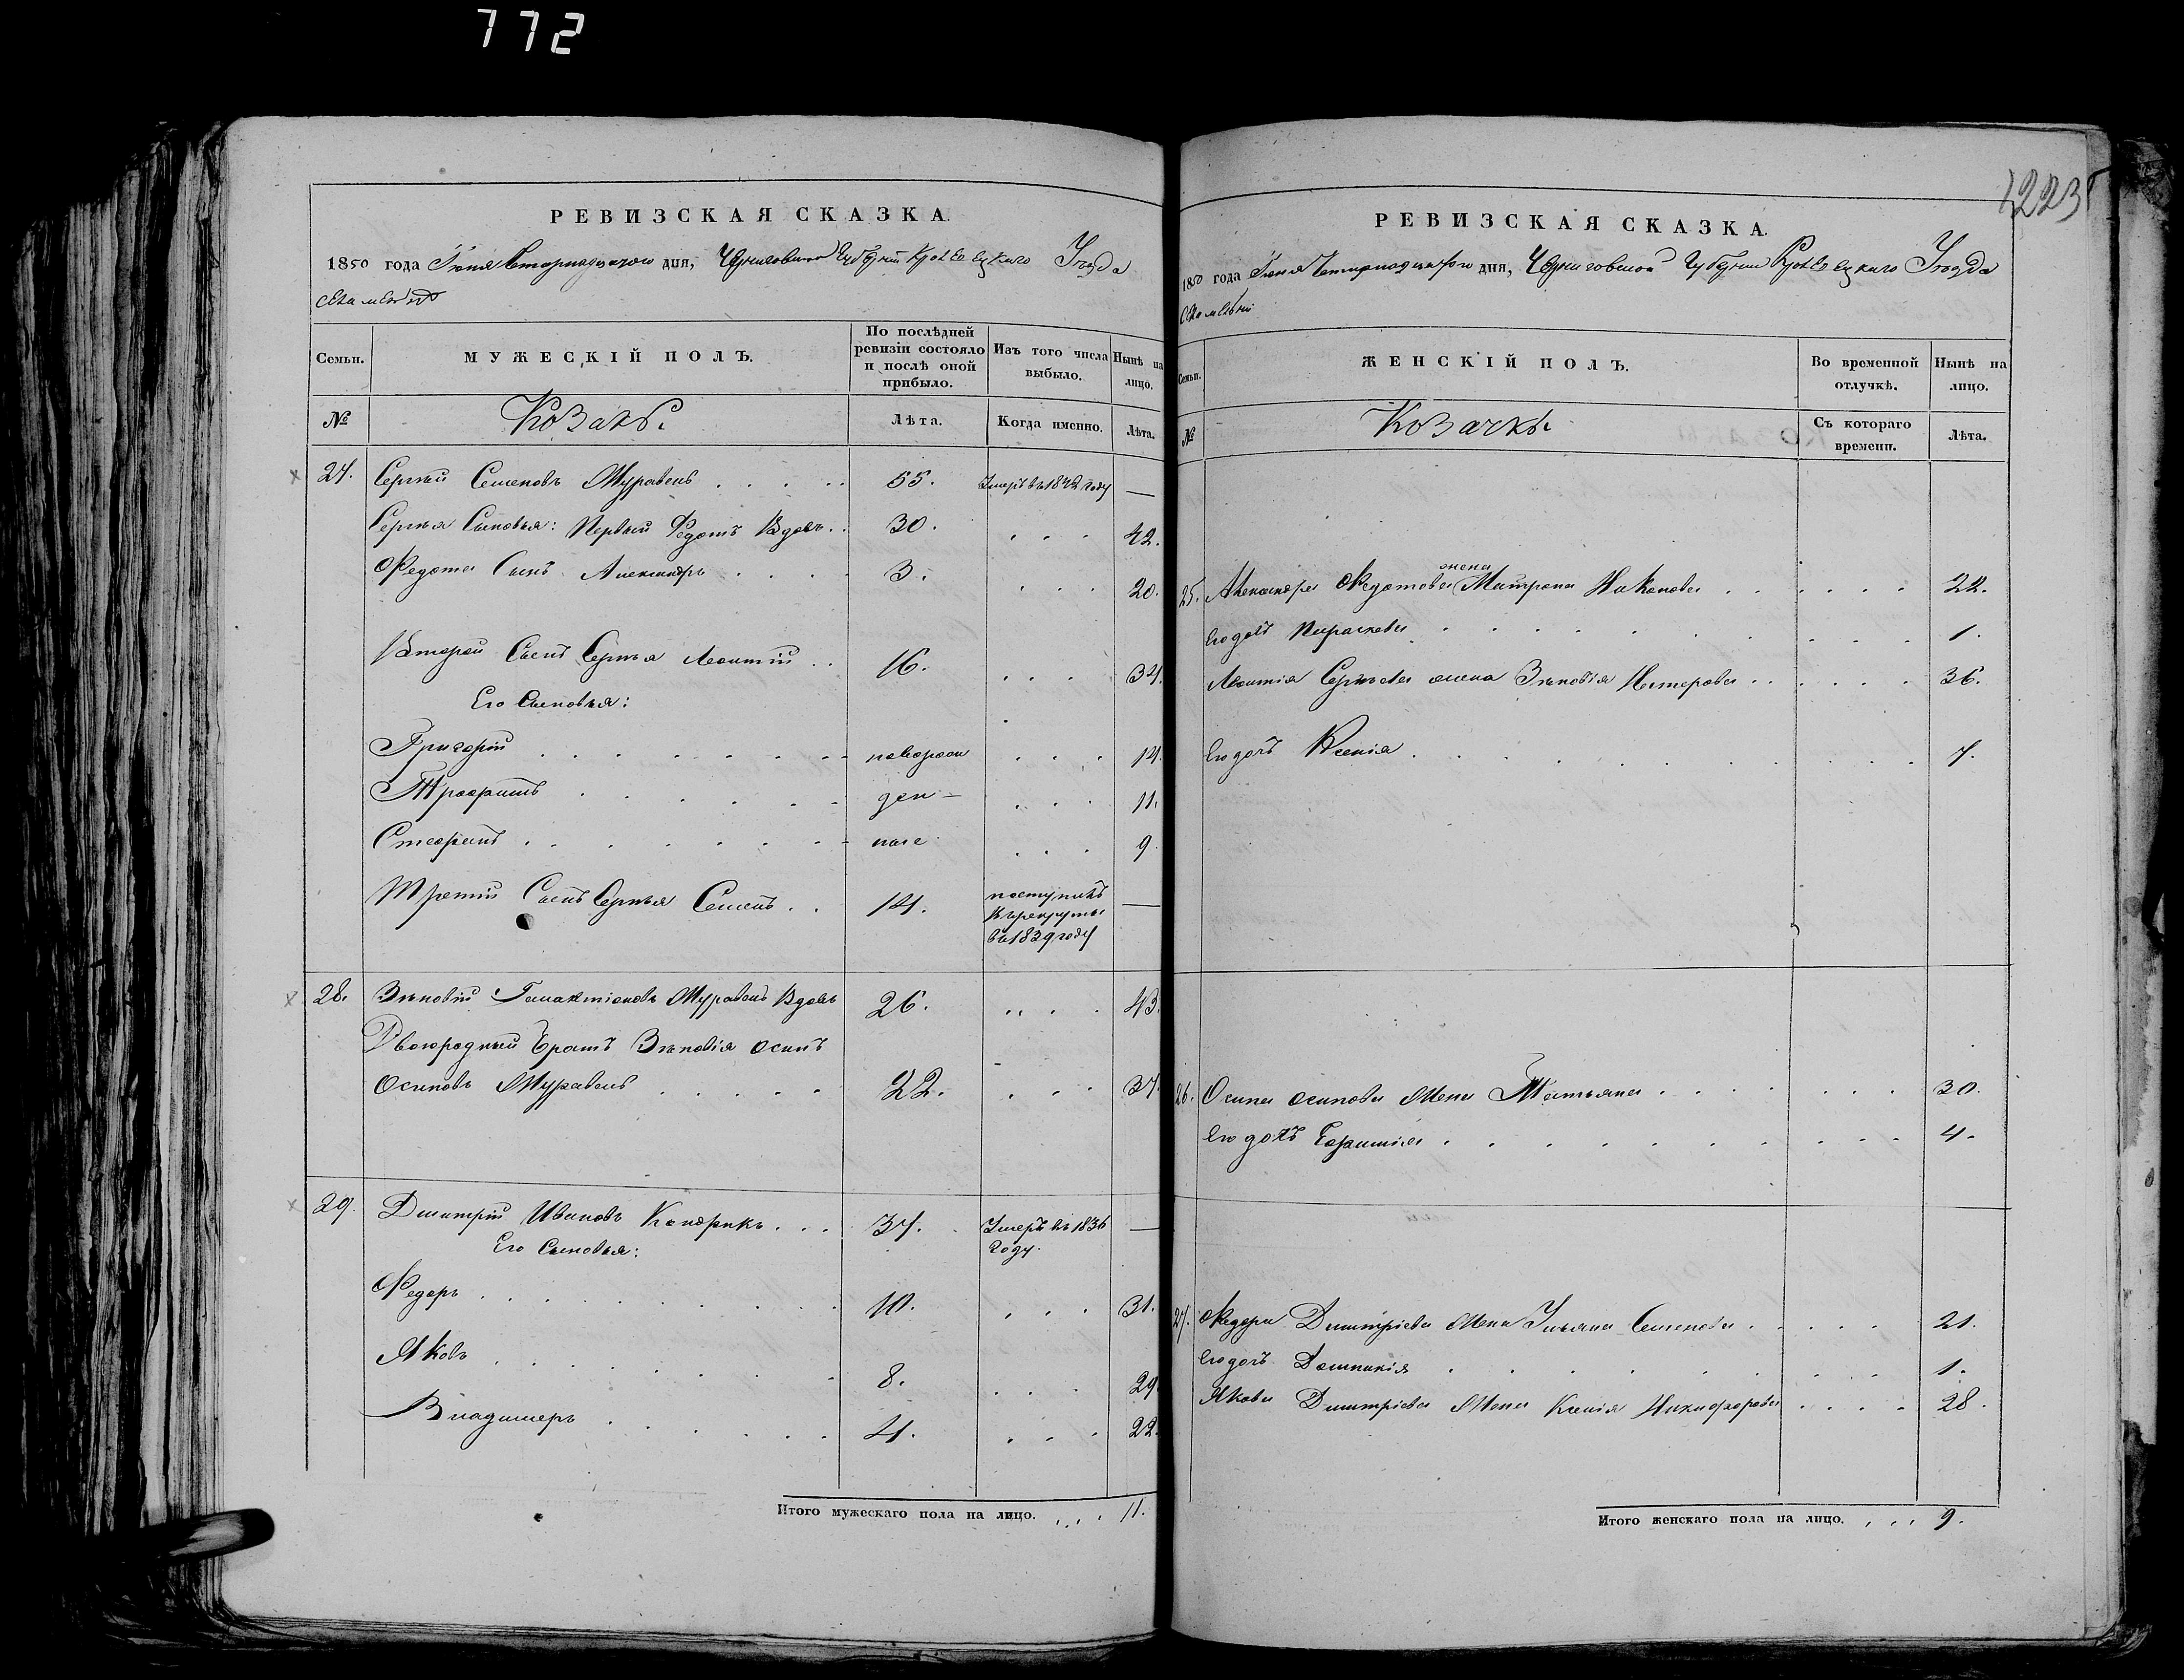 772
1223
РЕВИЗСКАЯ СКАЗКА.
1850 года Іюня Четырнадцатого дня, Черниговской Губерніи Кролевецкаго Уезда
Семьи.
МУЖЕСКІЙ ПОЛЪ.
По послѣдней ревизіи состояло и послѣ оной прибыло.
Изъ того числа выбыло.
Нынѣ на лицо.
№
Козакъ.
Лѣта.
Когда именно.
Лѣта.
27. Сергѣй Семеновъ Журавель . . . . . 55. Умеръ въ 1842 году —
Сергѣя Сыновья: Первый Федотъ Вдовъ . . 30. . . . 42.
Федота Сынъ Александръ . . . . 3. . . . 20.
Второй Сынъ Сергѣя Леонтій . . 16. . . . 34.
Его Сыновья:
Григорій . . . . . . . новорож . . . 14.
Трофимъ . . . . . . ден — . . . 11.
Стефанъ . . . . . . . ные . . . 9.
Третій Сынъ Сергѣя Семенъ . . 14. поступилъ —
въ рекруты
въ 1839 году
28. Зѣновій Галактіоновъ Журавель Вдовъ 26. . . . . 43.
Двоюродный братъ Зѣновія Осипъ
Осиповъ Журавель . . . . . 22. . . . 37.
29. Дмитрій Ивановъ Кондрикъ . . . 37. Умеръ въ 1836 —
Его Сыновья: году.
Федоръ . . . . . . . 10. . . . 31.
Яковъ . . . . . . . 8. . . . 29.
Владимеръ . . . . . . 4. . . . 22.
Итого мужескаго пола на лицо. . . . 11.
РЕВИЗСКАЯ СКАЗКА.
1850 года Іюня Четырнадцатого дня, Черниговской Губерніи Кролевецкаго Уезда
Семьи.
ЖЕНСКІЙ ПОЛЪ.
Во временной отлучкѣ.
Нынѣ на лицо.
№
Козачкы
Съ котораго времени.
Лѣта.
жена
25. Александра Федотова Матрона Никонова . . . . . . 22.
Его дочь Парасковия . . . . . . . . . 1.
Леонтія Сергѣева жена Зѣновія Нестерова . . . . . . 36.
Его дочь Ксенія . . . . . . . . . 7.
26. Осипа Осипова Жена Татьяна . . . . . . . 30.
Его дочь Евфимія . . . . . . . . . 4.
27. Федора Дмитріева Жена Ульяна Семенова . . . . . 21.
Его дочь Домникія . . . . . . . . 1.
Якова Дмитріева Жена Ксенія Никифорова . . . . 28.
Итого женскаго пола на лицо. . . . 9.